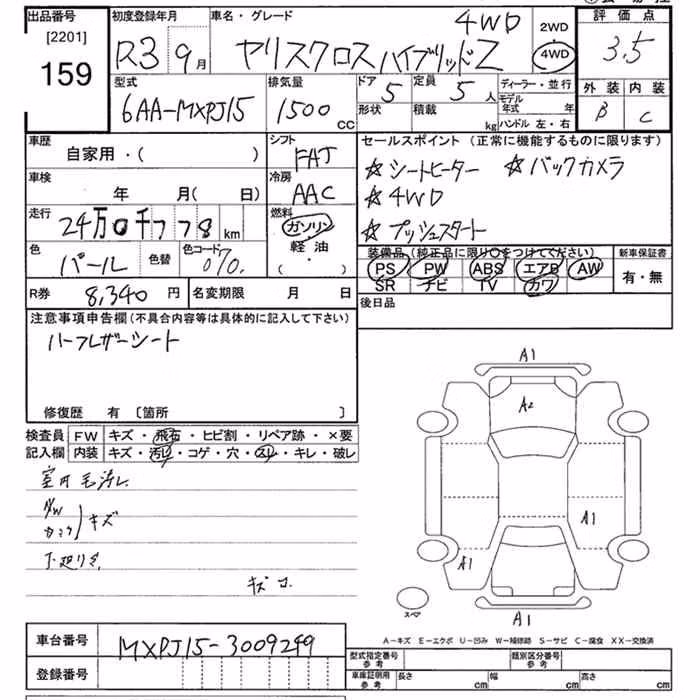 出品番号 初度登録年月 車名・グレード 4WD 2WD 評価点
[2201] R3 9月 ヤリスクロスハイブリッドZ 4WD 3.5
159
型式 排気量 ドア 5 定員 5人 ディーラー・並行 外装 内装
6AA-MXPJ15 1500CC 形状 積載 kg モデル年式 年 B C
ハンドル 左・右
車歴 シフト セールスポイント (正常に機能するものに限ります)
自家用・( ) FAT ☆シートヒーター ☆バックカメラ
車検 冷房 ☆4WD
年 月( 日) AAC ☆プッシュスタート
走行 燃料
24万0千778km ガソリン
軽・油
( ・ )
色 パール 色替 色コード 070. 装備品(純正品に限り○をつけてください) 新車保証書
PS PW ABS エアB AW 有・無
SR ナビ TV カワ
R券 8,340円 名変期限 月 日 後日品
注意事項申告欄(不具合内容等は具体的に記入して下さい)
ハーフレザーシート
修復歴 有 〔箇所 〕
検査員 FW キズ・飛石・ヒビ割・リペア跡・×要
記入欄 内装 キズ・汚レ・コゲ・穴・スレ・キレ・破レ
室内毛汚レ
キズ
下廻りサ
A1
A2
A1
A1
スペア
A1
A-キズ E-エクボ U-凹み W-補修跡 S-サビ C-腐食 XX-交換済
車台番号 MXPJ15-3009249 型式指定番号 参考 類別区分番号 参考
登録番号 車庫証明用 参考 長さ cm 幅 cm 高さ cm